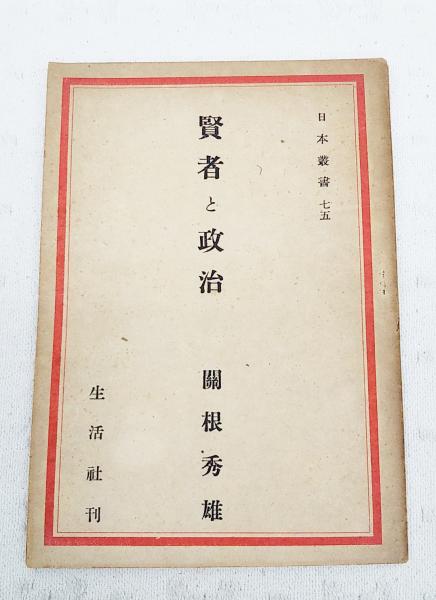 日本叢書 七五
賢者と政治 關根秀雄
生活社刊